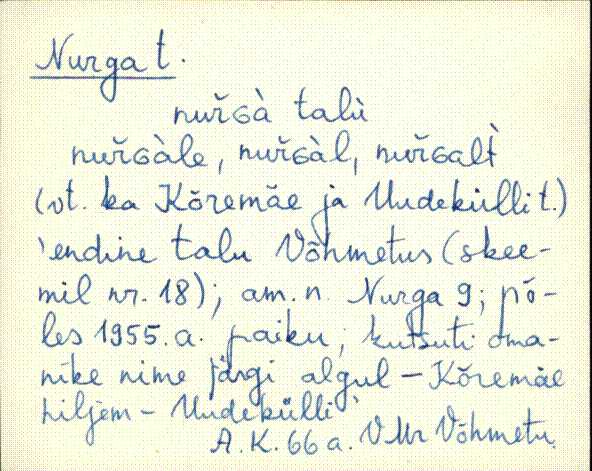 Nurga t.
nuřɢà talù
nuřɢàle, nuřɢàl, nuřɢalt̀
(vt. ka Kõremäe ja Uudekülli t.)
'endine talu Võhmetus (skee-
mil nr. 18); am. n. Nurga 9; põ-
les 1955. a. paiku; kutsuti oma-
nike nime järgi algul – Kõremäe
hiljem – Uudekülli'
A. K. 66 a. VMr Võhmetu